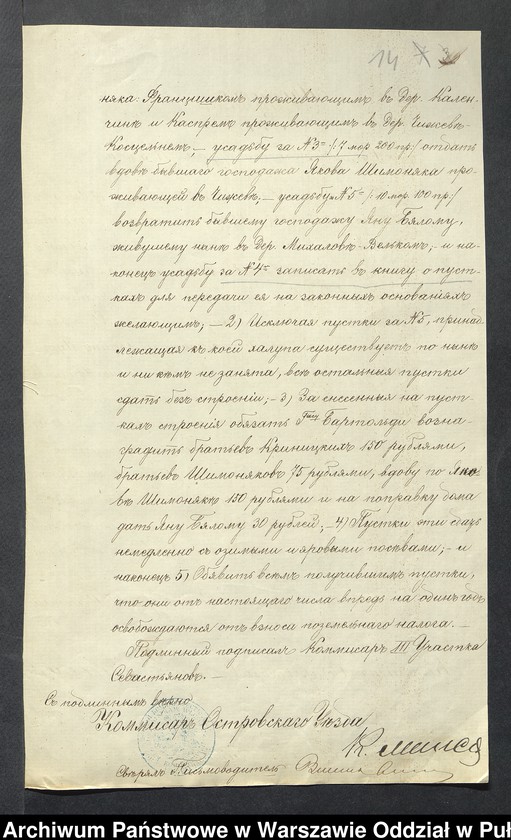 14 3
няка: Францишкомъ проживающимъ въ дер. Кален-
чинъ и Каспромъ проживающимъ въ дер. Чижевъ-
Косцельнемъ, – усадьбу за №3 /7 мор. 200 пр./ отдать
вдовѣ бывшаго господажа Якова Шимоняка про-
живающей въ Чижевѣ, – усадьбу №5 / 10 мор. 100 пр./
возвратить бывшему господажу Яну Бялому,
живущему нынѣ въ дер. Михаловѣ-Велькомъ; – и на-
конецъ усадьбу за №4 записать въ книгу о пуст-
кахъ для передачи ея на законныхъ основаніяхъ
желающимъ; – 2) Исключая пустки за №5, принад-
лежащая къ коей халупа существуетъ по нынѣ
и никѣмъ не занята, всѣ остальныя пустки
сдать безъ строеній; – 3) За снесенныя на пуст-
кахъ строенія обязать Гжу Бартольди возна-
градить братьевъ Криницкихъ 150 рублями,
братьевъ Шимоняковъ 75 рублями, вдову по Яко-
вѣ Шимонякѣ 130 рублями и на поправку дома
дать Яну Бялому 30 рублей; – 4) Пустки эти сдать
немедленно съ озимыми и яровыми посѣвами; – и
наконецъ 5) Объявить всѣмъ получившимъ пустки,
что они отъ настоящаго числа впредь на одинъ годъ
освобождаются отъ взноса поземельнаго налога. –
Подлинный подписалъ Коммисаръ III Участка
Севастьяновъ. –
Съ подлиннымъ вѣрно
Коммисаръ Островскаго Уѣзда
Свѣрялъ Письмоводитель
Archiwum Państwowe w Warszawie Oddział w Puł